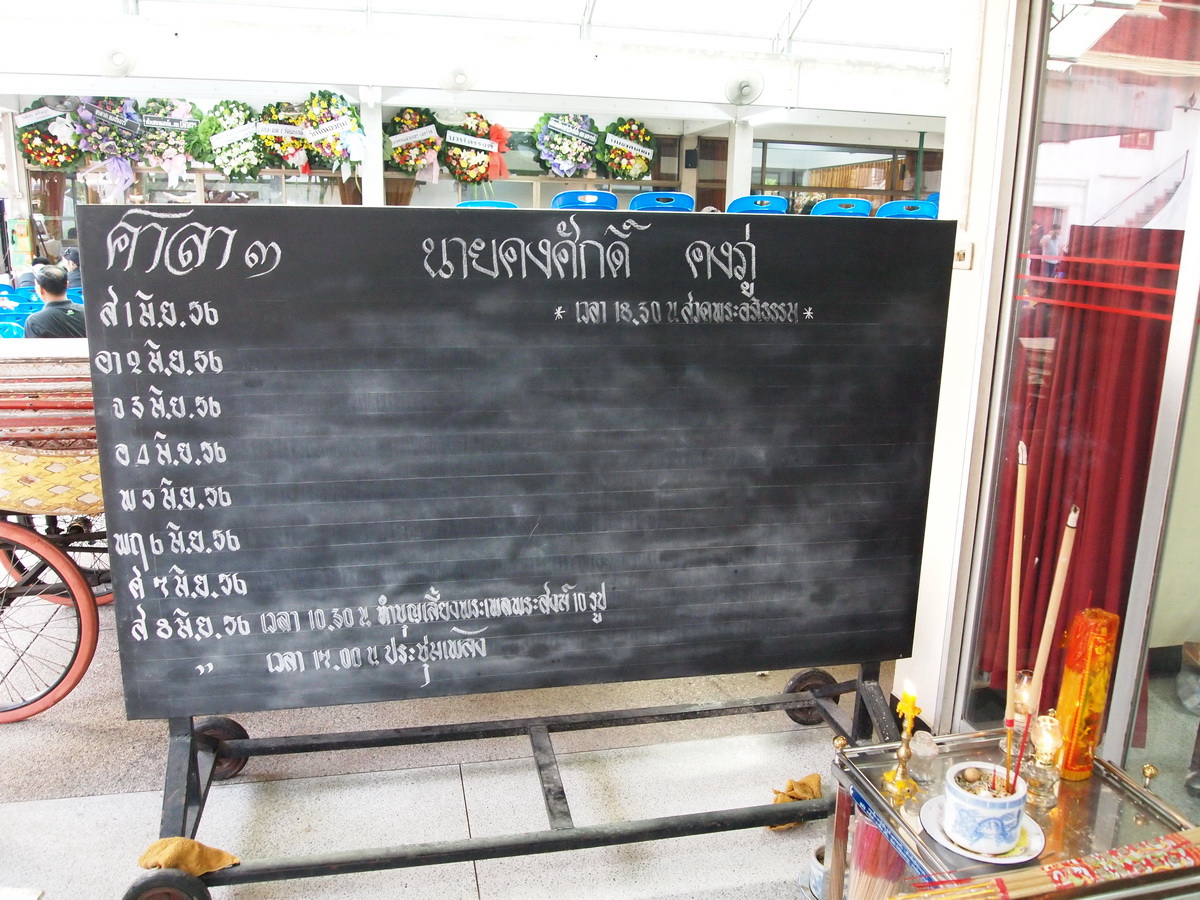 ศาลา ๓ นายคงศักดิ์ คงภู่
* เวลา 18.30 น สวดพระอภิธรรม *
ส 1 มิ.ย. 56
อา 2 มิ.ย. 56
จ 3 มิ.ย. 56
อ 4 มิ.ย. 56
พ 5 มิ.ย. 56
พฤ 6 มิ.ย. 56
ศ 7 มิ.ย. 56
ส 8 มิ.ย. 56 เวลา 10.30 น ทำบุญเลี้ยงพระเพลพระสงฆ์ 10 รูป
" เวลา 17.00 น ประชุมเพลิง